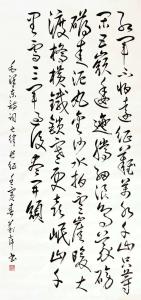 紅軍不怕遠征難萬水千山只等
閑五嶺逶迤騰細浪烏蒙磅
礴走泥丸金沙水拍雲崖暖大
渡橋橫鐵索寒更喜岷山千
里雪三軍過後盡開顏
毛澤東詩詞七律長征 寅春 書